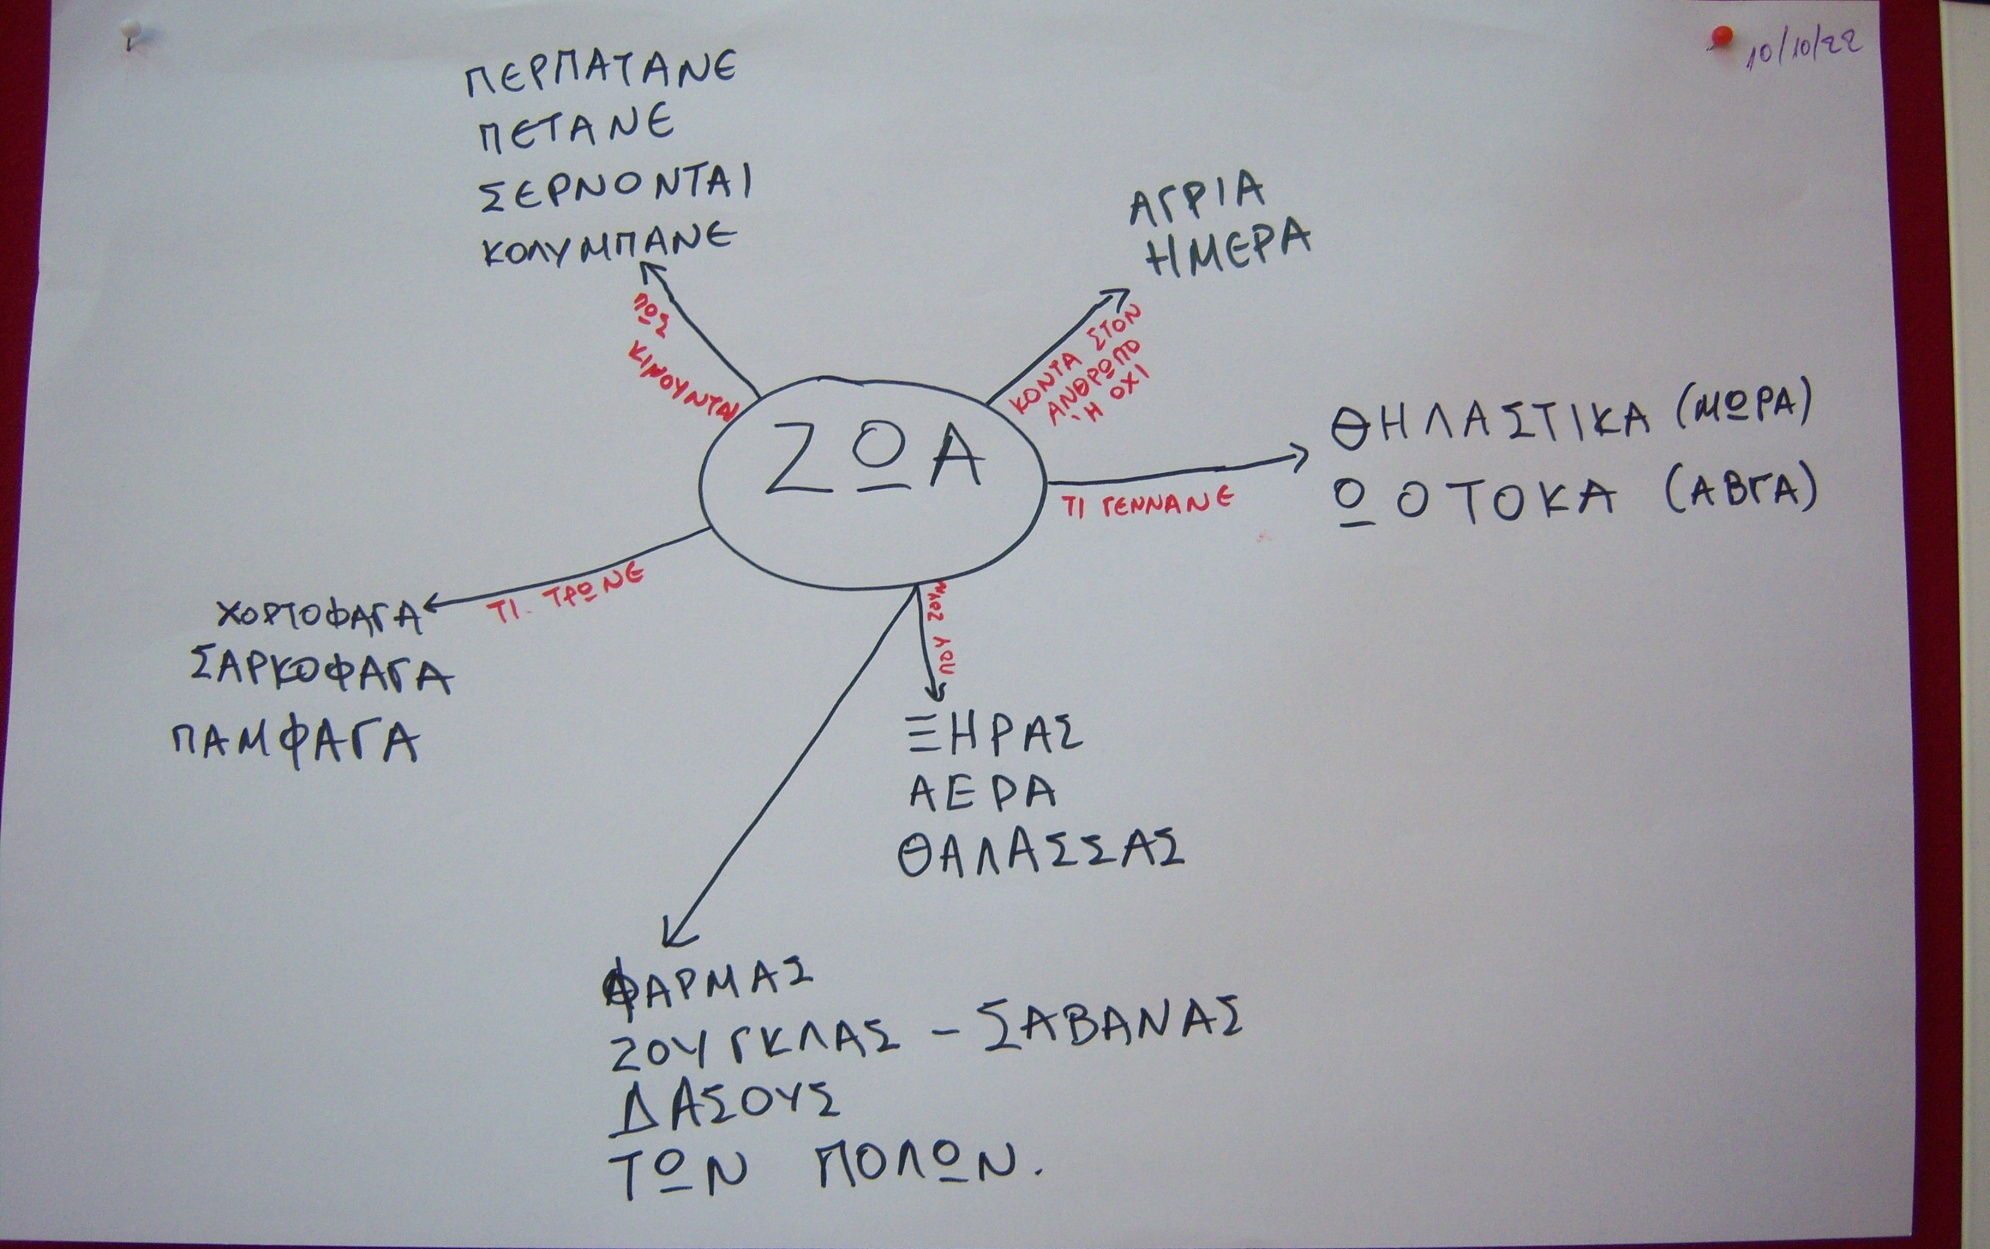 10/10/22
ΠΕΡΠΑΤΑΝΕ
ΠΕΤΑΝΕ
ΣΕΡΝΟΝΤΑΙ
ΚΟΛΥΜΠΑΝΕ
ΠΩΣ
ΚΙΝΟΥΝΤΑΙ
ΑΓΡΙΑ
ΗΜΕΡΑ
ΚΟΝΤΑ ΣΤΟΝ
ΑΝΘΡΩΠΟ
Ή ΟΧΙ
ΖΩΑ
ΤΙ ΓΕΝΝΑΝΕ
ΘΗΛΑΣΤΙΚΑ (ΜΩΡΑ)
ΩΟΤΟΚΑ (ΑΒΓΑ)
ΤΙ ΤΡΩΝΕ
ΧΟΡΤΟΦΑΓΑ
ΣΑΡΚΟΦΑΓΑ
ΠΑΜΦΑΓΑ
ΞΗΡΑΣ
ΑΕΡΑ
ΘΑΛΑΣΣΑΣ
ΦΑΡΜΑΣ
ΖΟΥΓΚΛΑΣ - ΣΑΒΑΝΑΣ
ΔΑΣΟΥΣ
ΤΩΝ ΠΟΛΩΝ.